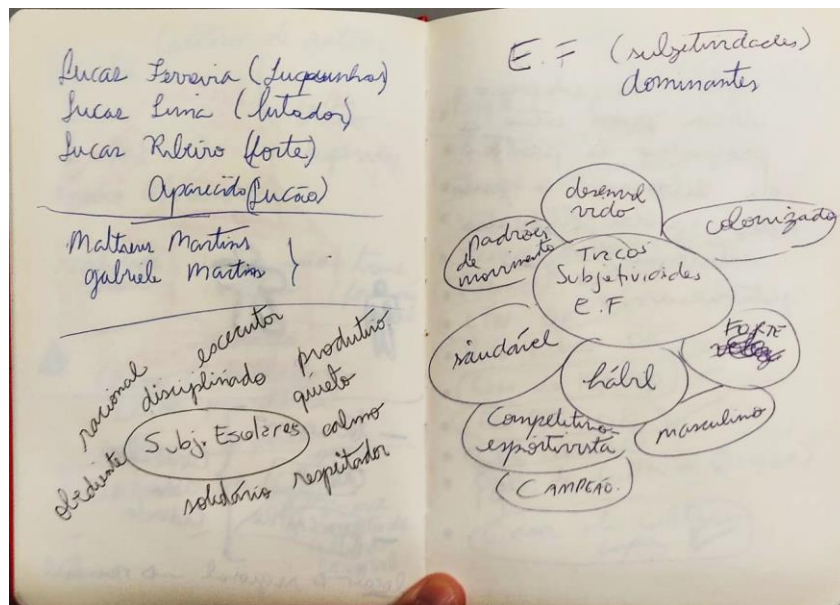 Lucas Ferreira (Luquinhas)
Lucas Lima (lutador)
Lucas Ribeiro (forte)
Aparecido (Lucão)
Matheus Martins
gabriele Martins }
racional
escecutor
disciplinado
produtivo
quieto
Subj. Escolares
calmo
obediente
solidário
respeitador
E.F (subjetividades)
dominantes
desenvol
vido
colonizado
padrões
de
movimento
Subjetividades
E.F
saudável
hábil
FORTE
masculino
Competitivo
esportivista
CAMPEÃO.